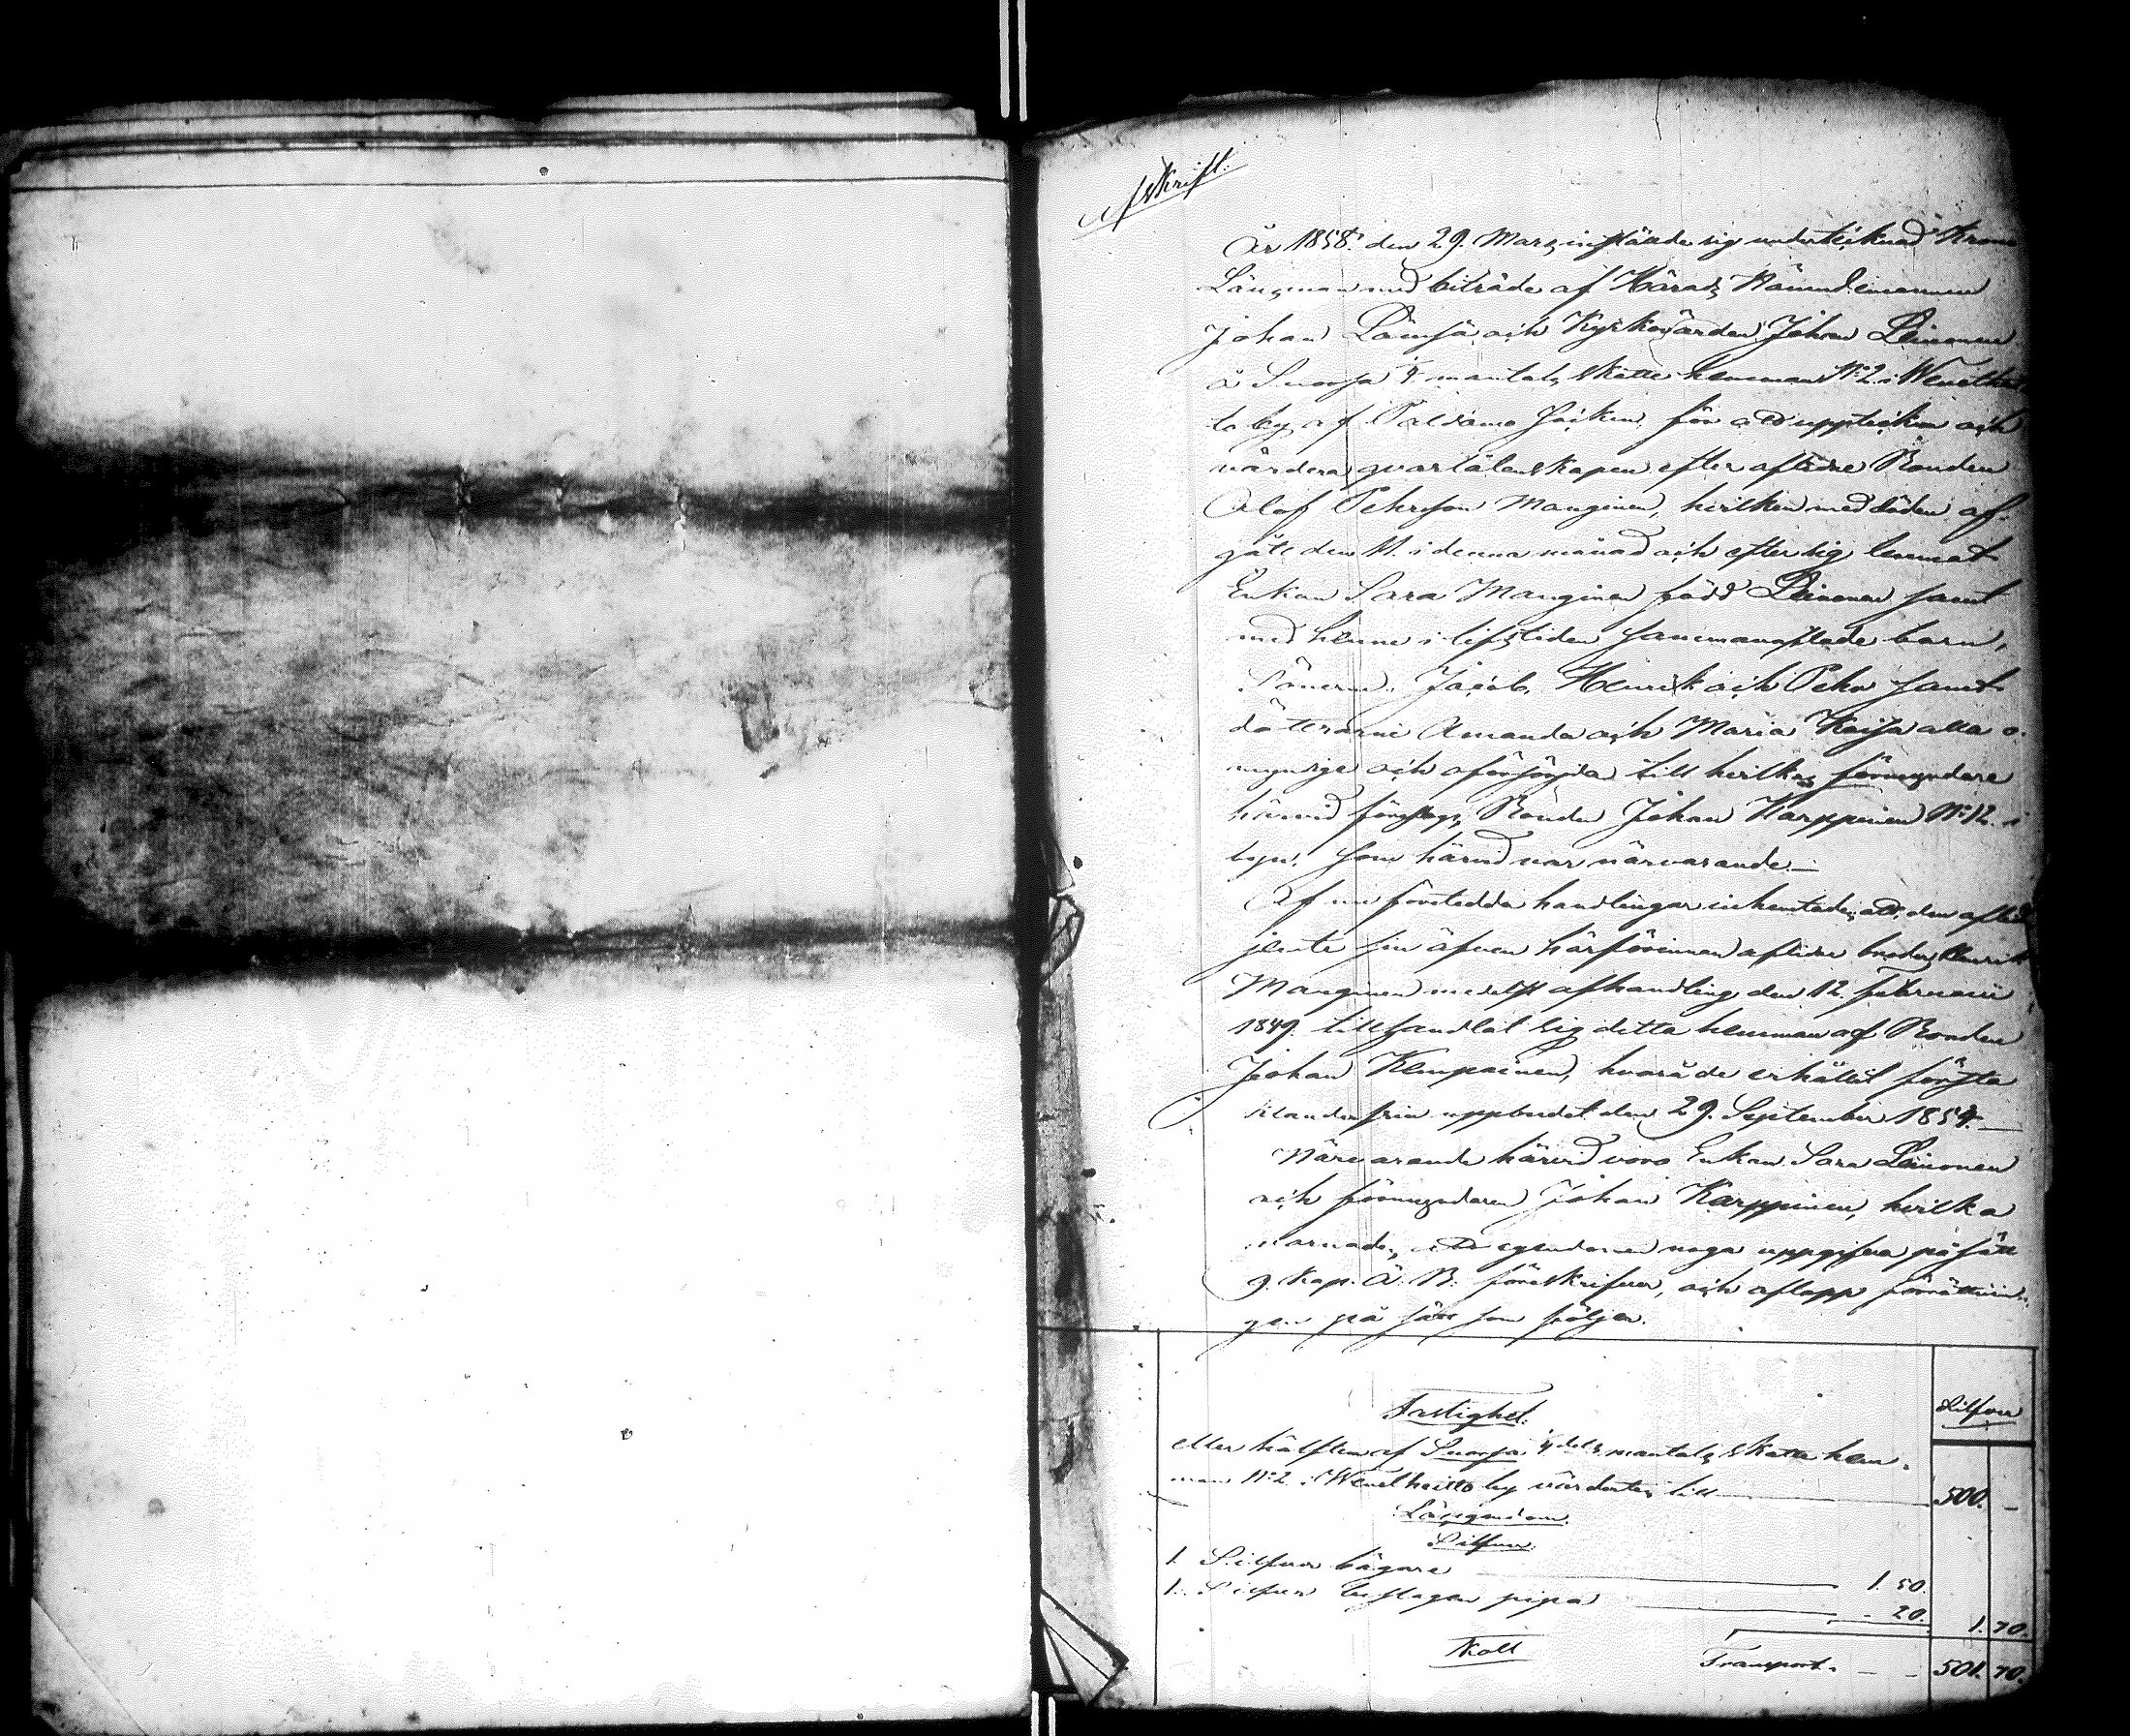 Afskrift.
År 1858. den 29. Mars, inställde sig undertecknad Krono
Länsman med biträde af Härads Nämndemannen
Johan Lämsä och Kyrkovärden Johan Leinonen
å Suonja 1/4 mantals skatte hemman N:o 2 i Wenethei
to by af Paldamo Socken för att uppteckna och
värdera qvarlåtenskapen efter aflidne Bonden
Olof Pehrsson Manginen, hvilken med döden af-
gått den 11. i denna månad och efter sig lemnat
Enkan Sara Manginen född Leinonen samt
med henne i lifstiden sammanaflade barn,
Sönerne Jacob, Henrik och Pehr samt
döttrarne Amanda och Maria Kaisa alla o-
myndige och oförsörjda till hvilkas förmyndare
härvid föreslogs Bonden Johan Karppinen N:o 12. i
byn. som härvid var närvarande.—
Af nu företedda handlingar inhemtades, att den aflidne
jemte sin äfven härförinnan aflidne broder Henrik
Manginen medelst afhandling den 12. Februarii
1849. tillhandlat sig detta hemman af Bonden
Johan Kemppainen, hvarå de erhållit första
klanderfria uppbudet den 29. September 1854.—
Närvarande härvid voro Enkan Sara Leinonen
och förmyndaren Johan Karppinen, hvilka
varnades, att egendomen noga uppgifva på sätt
9. Kap. Ä. B. föreskrifver, och aflopp förrättnin-
gen på sätt som följer.
Silfver
Fastighet.
eller hälften af Suonja 1/4 dels mantals skatte hem-
man N:o 2 i Wenetheitto by värdertes till 500. –
Lösegendom.
Silfver.
1. Silfver bägare 1. 50.
1. Silfver beslagen pipa – 20. 1. 70.
Koll
Transport. – – 501. 70.